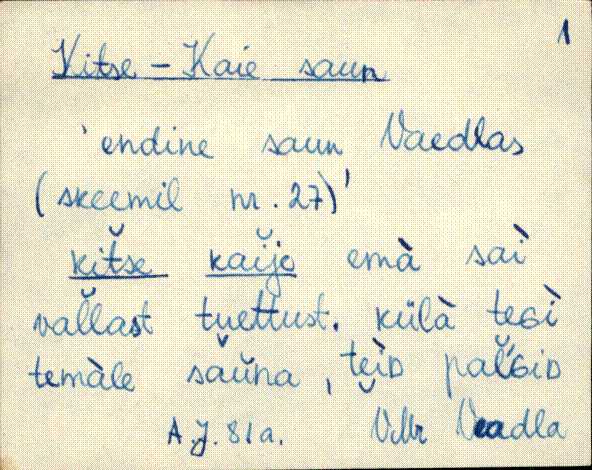 1
Kitse-Kaie saun
'endine saun Vaedlas
(skeemil nr. 27)'
kit̆še kaĭjo emà saì
val̆last tuettust. külà teGì
temàle săŭna, tèiD pal̆'GiD
A.J. 81a. VMr Vaadla